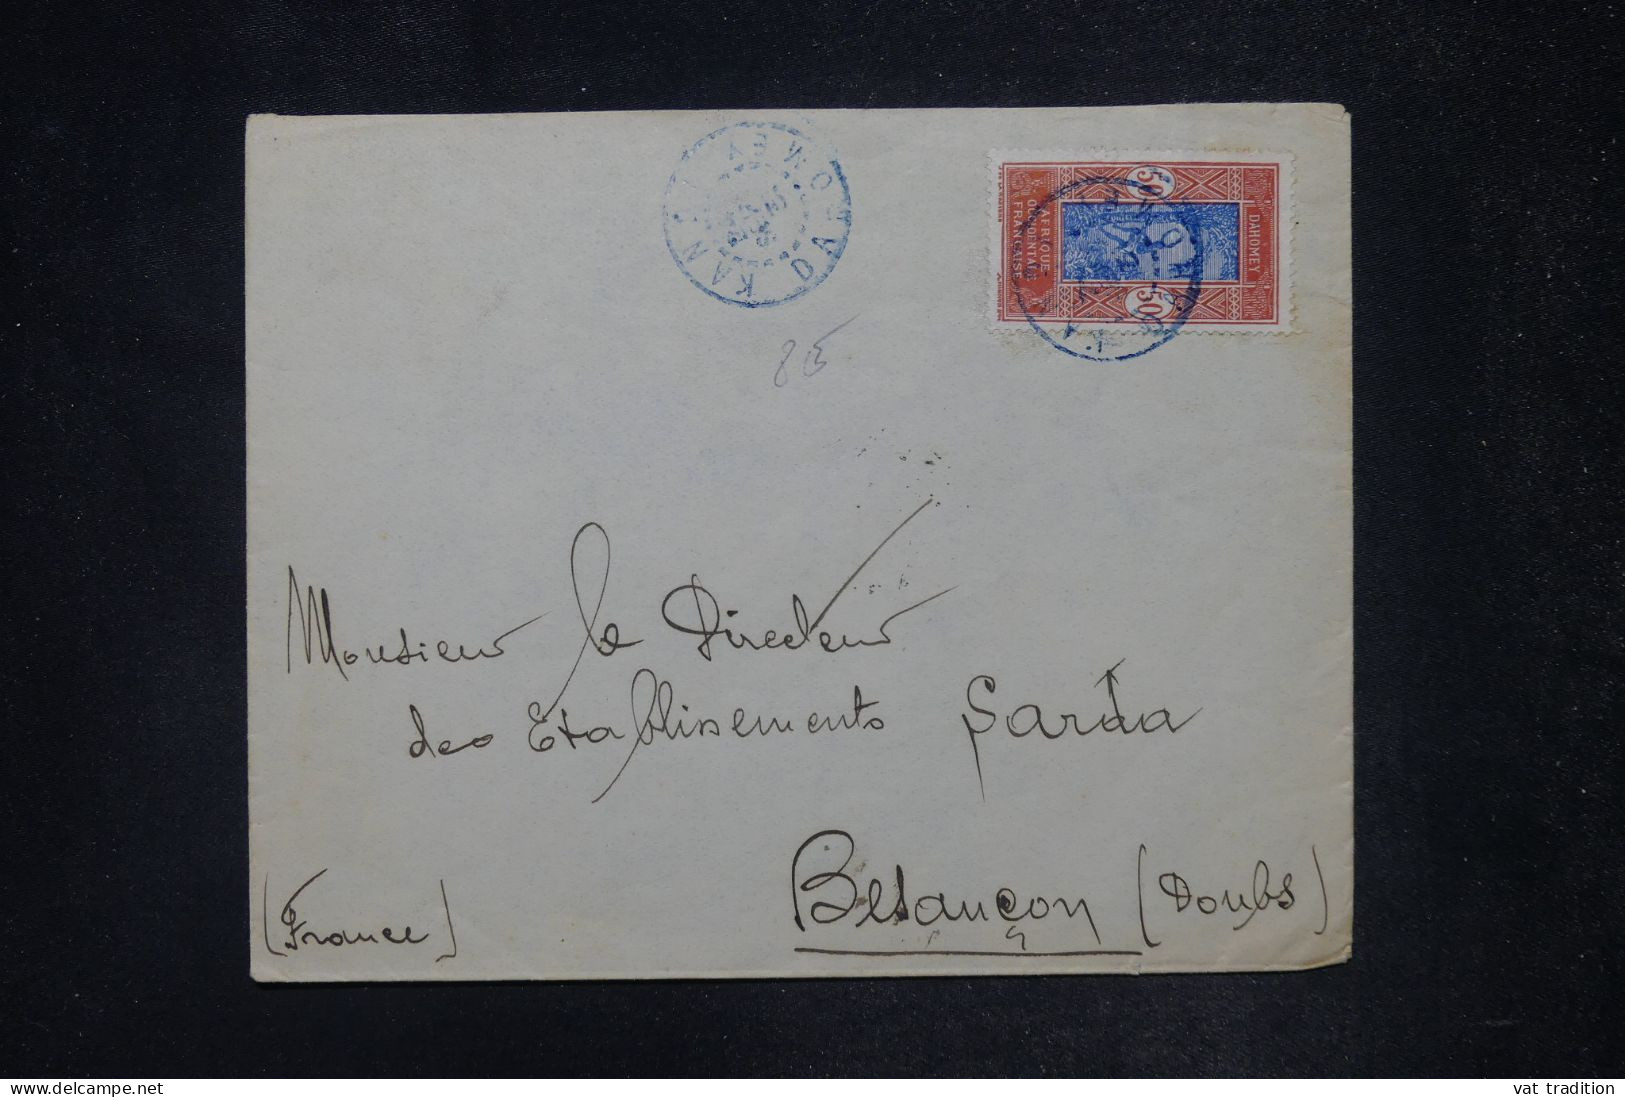 KANDI DAHOMEY
50
AFRIQUE
OCCIDENTALE
FRANÇAISE
DAHOMEY
50
Monsieur le Directeur
des Etablissements Sarda
Besançon (Doubs)
(France)
www.delcampe.net
vat tradition